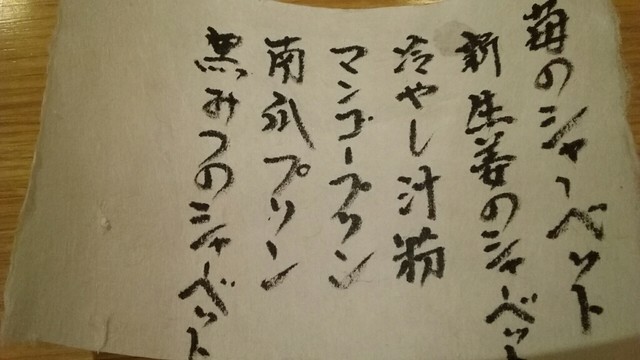 苺のシャーベット
新生姜のシャーベット
冷やし汁粉
マンゴープリン
南瓜プリン
黒みつのシャーベット